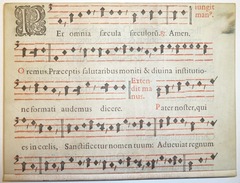 iungit
man⁹.
R
Er omnia sæcula sæculorũ. ℟. Amen.
Oremus Præceptis salutaribus moniti & diuina institutio-
Exten-
dit ma
nus.
ne formati audemus dicere. Pater noster, qui
es in cœlis, Sanctificetur nomen tuum: Adueniat regnum